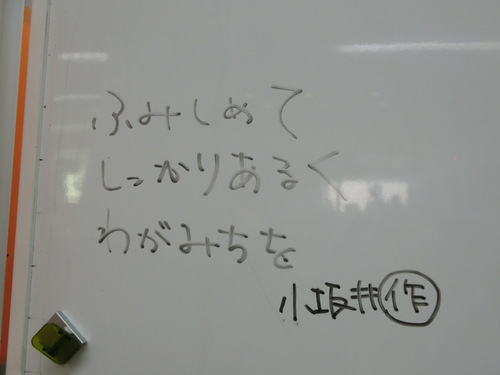 ふみしめて
しっかりあるく
わがみちを
小坂井作